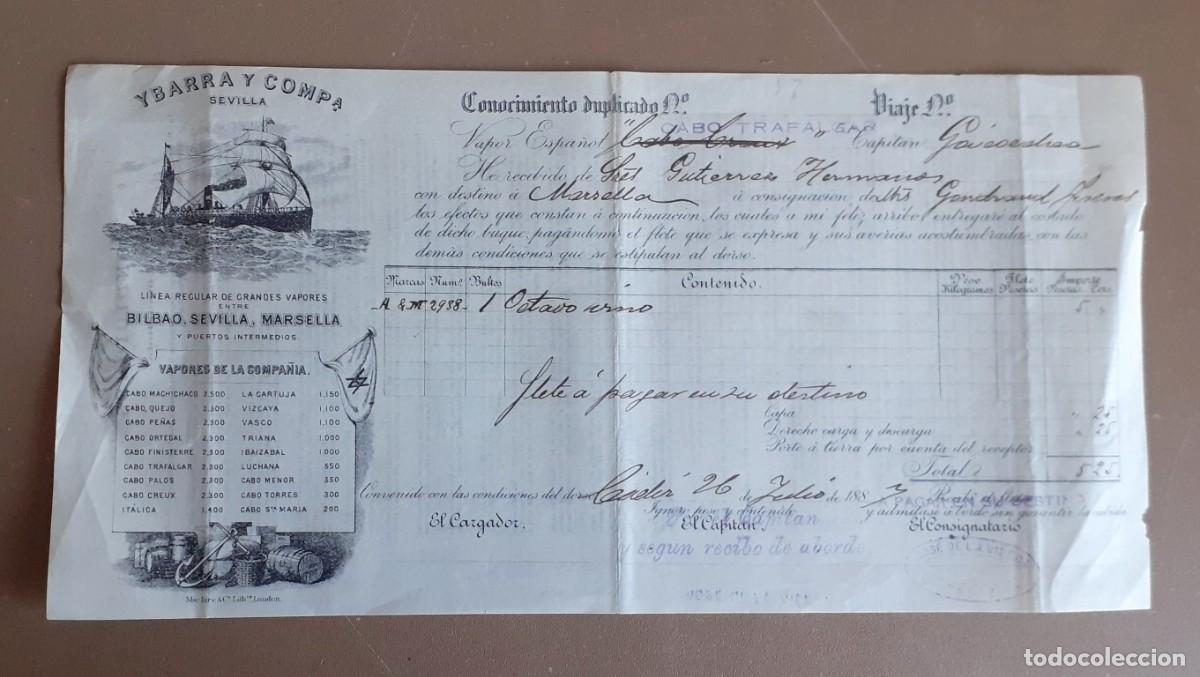 YBARRA Y COMPA.
SEVILLA
LINEA REGULAR DE GRANDES VAPORES
ENTRE
BILBAO, SEVILLA, MARSELLA
Y PUERTOS INTERMEDIOS.
VAPORES DE LA COMPAÑIA.
CABO MACHICHACO 2,500 LA CARTUJA 1,150
CABO QUEJO 2,300 VIZCAYA 1,100
CABO PEÑAS 2,300 VASCO 1,100
CABO ORTEGAL 2,300 TRIANA 1,000
CABO FINISTERRE 2,300 IBAIZABAL 1,000
CABO TRAFALGAR 2,300 LUCHANA 550
CABO PALOS 2,300 CABO MENOR 350
CABO CREUX 2,300 CABO TORRES 300
ITÁLICA 1,400 CABO Sta MARIA 200
Maclure & Co. Lith. London.
Conocimiento duplicado No. Viaje No.
CABO TRAFALGAR
Vapor Español "Cabo Creux" Capitan
He recibido de Sres Gutierrez Hermanos
con destino á Marsella á consignacion de Gondrand Freres
los efectos que constan á continuacion, los cuales a mi feliz arribo entregaré al costado
de dicho buque, pagándome el flete que se expresa y sus averias acostumbradas, con las
demás condiciones que se estipulan al dorso.
Marcas Numo. Bultos Contenido. Peso Kilogramos Flete Pesetas Importe Pesetas Cens.
2938 1 Octavo vino 5 "
flete á pagar en su destino
Capa " 25
Derecho carga y descarga " 25
Porte á tierra por cuenta del receptor
Total 5 25
Convenido con las condiciones del dorso Cádiz 26 de Julio de 1887
Ignoro peso y contenido y admitase á bordo sin garantir la avería
El Cargador. El Capitan. El Consignatario
Capitan
y segun recibo de abordo
todocoleccion